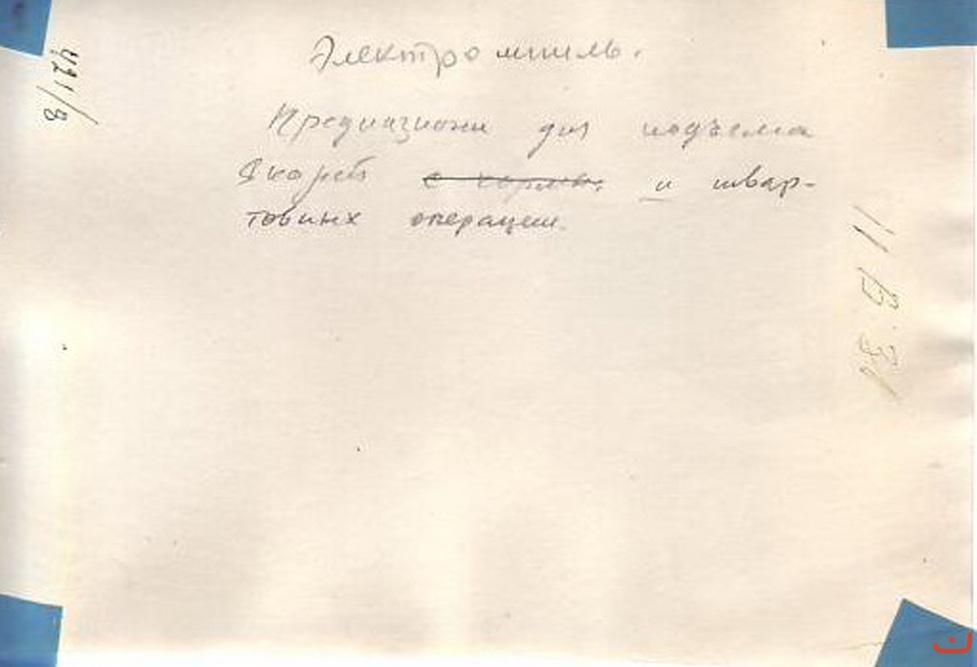 Электрошпиль.
Предназначен для подъема
Якорей с кормы. и швар-
товных операции.
421/8